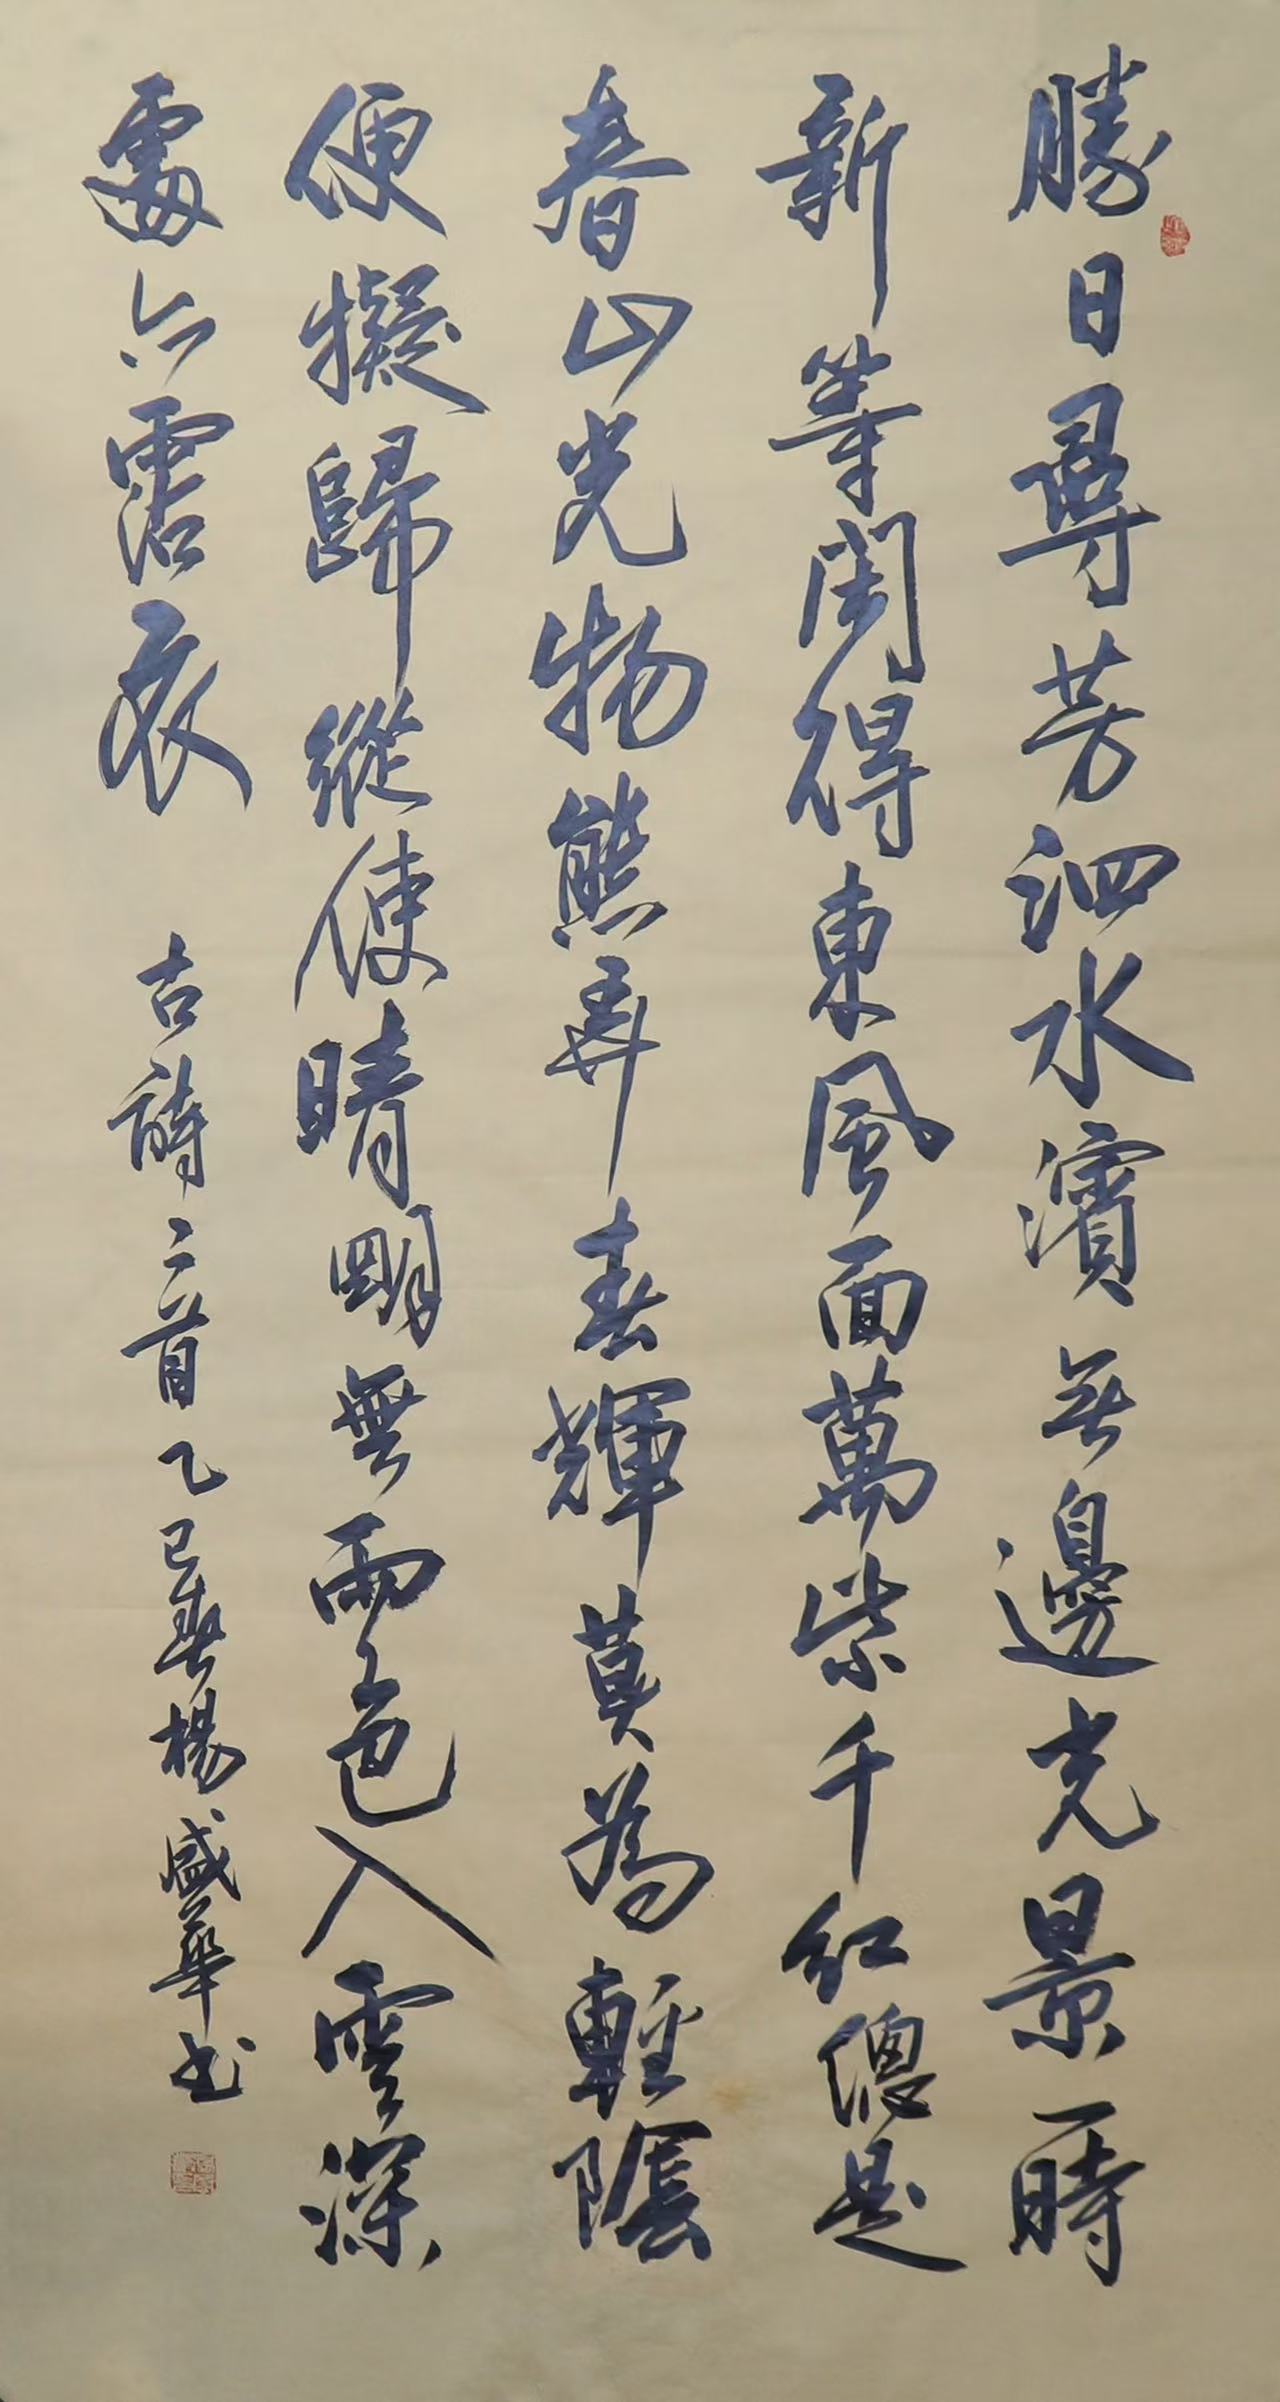 勝日尋芳泗水濱無邊光景一時
新等閑得東風面萬紫千紅總是
春山光物熊弄春輝莫為輕陰
便擬歸縱使晴明無雨色入雲深
處亦霑衣
古詩二首乙巳春楊盛華书